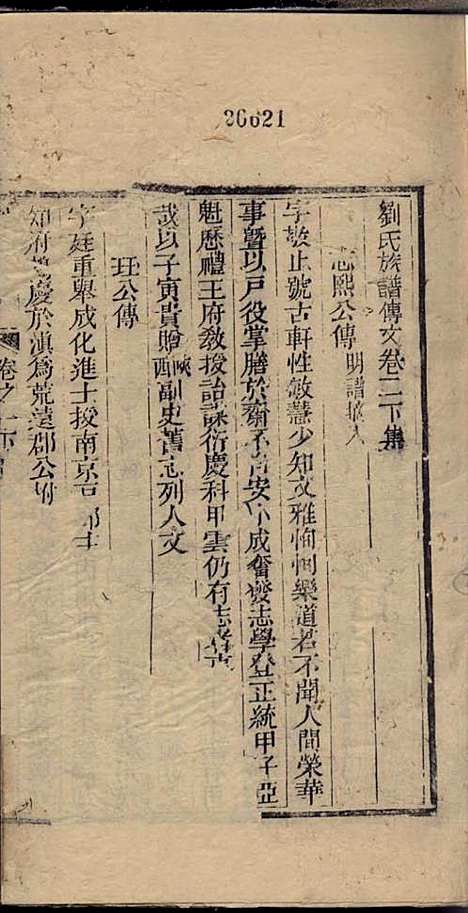 26621
劉氏族譜傳文卷二下集
志熙公傳 明譜摘入
字敬止號古軒性敏慧少知文雅恂恂樂道若不聞人間榮華
事曁以戶役掌膳於成奮發志學登正統甲子亞
魁歷禮王府敎授詒謀衍慶科甲雲仍有志
哉以子寅貴贈陝西副史舊志列人文
玨公傳
字廷重舉成化進士授南京
知府慶於滇爲荒遠郡公
卷之二下